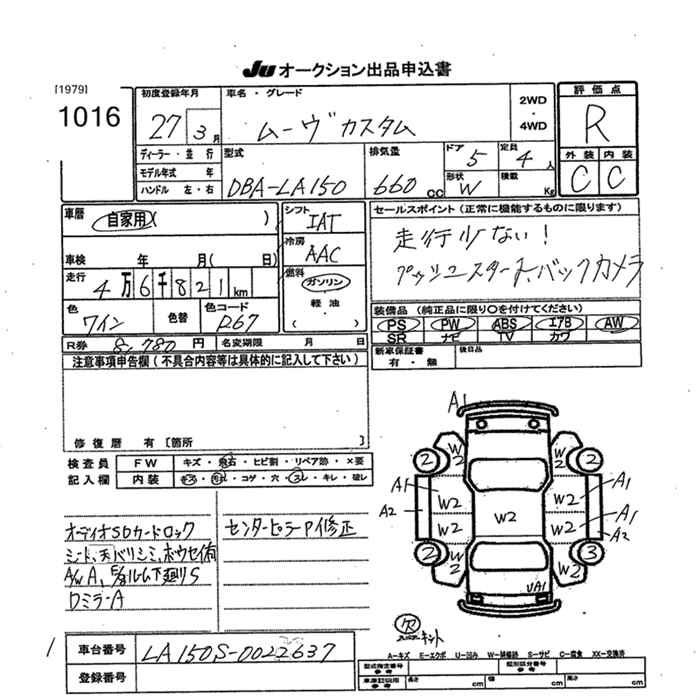 JU オークション出品申込書
[1979]
1016
初度登録年月
27 3月
車名・グレード
ムーヴカスタム
2WD
・
4WD
評価点
R
ディーラー・並行
モデル年式 年
ハンドル 左・右
型式
DBA-LA150
排気量
660 CC
ドア
5
定員
4人
形状
W
積載
Kg
外装 内装
C C
車歴
自家用( )
シフト
IAT
セールスポイント (正常に機能するものに限ります)
走行少ない!
プッシュスタート、バックカメラ
車検 年 月( 日)
冷房
AAC
走行
4万6千821km
燃料
ガソリン
軽油
( )
色
ワイン
色替
色コード
R67
装備品 (純正品に限り○を付けてください)
PS PW ABS エアB AW
SR ナビ TV カワ
R券 8,780円
名変期限 月 日
新車保証書
有・無
後日品
注意事項申告欄 (不具合内容等は具体的に記入して下さい)
修復歴 有 [箇所 ]
検査員
記入欄
FW キズ・飛石・ヒビ割・リペア跡・×要
内装 キズ・汚れ・コゲ・穴・ヌレ・キレ・破レ
オーディオSDカードロック
シート、天バリシミ、ホウセイ有
A/W A、E/gルーム下廻りS
Dミラー A
センターピラーP修正
A1
2 W2 W2 2
A1 W2 W2 A1
A2 W2
W2 W2 A1
A2
2 W2 W2 3
UA1
欠
キット
A-キズ E-エクボ U-凹み W-補修跡 S-サビ C-腐食 XX-交換済
1
車台番号
LA150S-0022637
登録番号
型式指定番号
参考
類別区分番号
参考
車庫証明用
参考
長さ cm
幅 cm
高さ cm